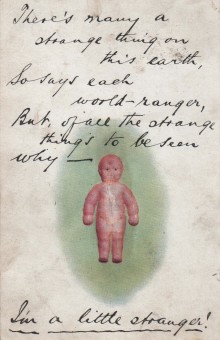 There's many a
strange thing on
this earth,
So says each
world-ranger,
But, of all the strange
things to be seen
why —
I'm a little stranger!